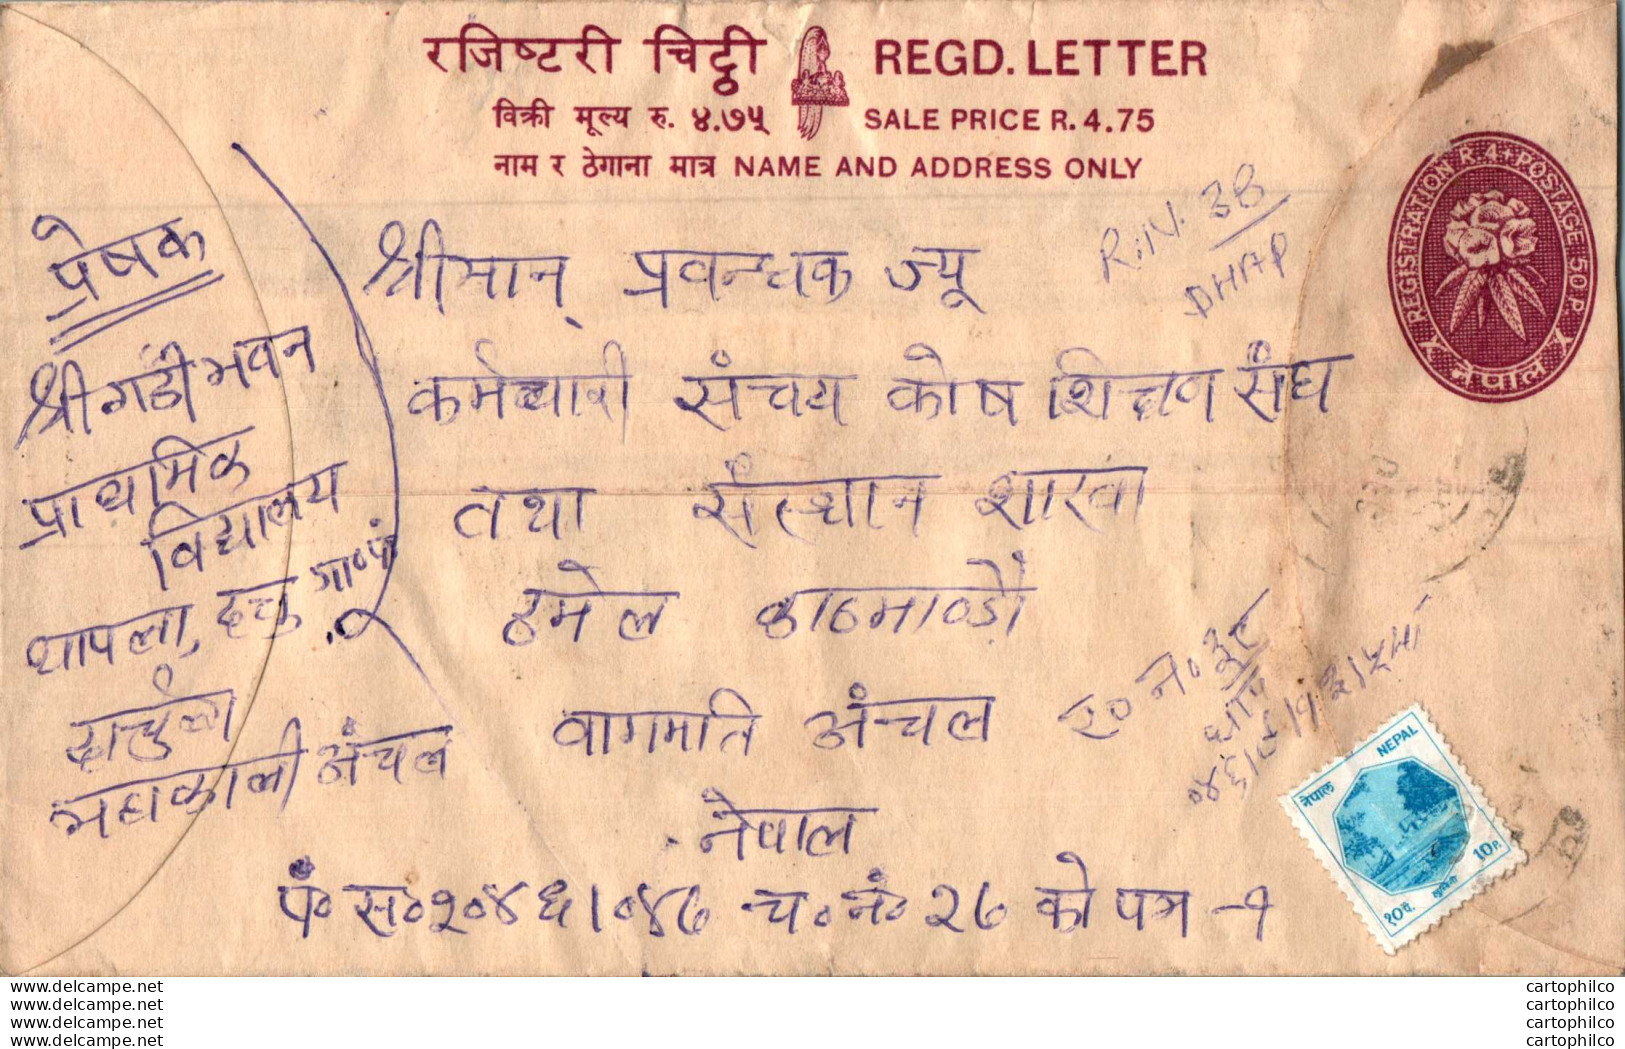 रजिष्टरी चिट्ठी REGD. LETTER
विक्री मूल्य रु. ४.७५ SALE PRICE R. 4.75
नाम र ठेगाना मात्र NAME AND ADDRESS ONLY
REGISTRATION R 4 + POSTAGE 50 P.
नेपाल
R.N. 38
DHAP
प्रेषक
श्री गडी भवन
प्राथमिक
विद्यालय
थापला, दत्तु गा॰पं
दार्चुला
महाकाली अंचल
श्रीमान् प्रवन्धक ज्यू
कर्मचारी संचय कोष शिक्षण संघ
तथा संस्थान शाखा
ठमेल काठमाण्डौं
वागमति अंचल
नेपाल
पं॰ स॰ २०४६।०४७ च॰ नं॰ २७ को पत्र -१
र॰ न॰ ३८
धाप
नेपाल NEPAL
१० पै. 10 P.
www.delcampe.net
www.delcampe.net
www.delcampe.net
www.delcampe.net
cartophilco
cartophilco
cartophilco
cartophilco